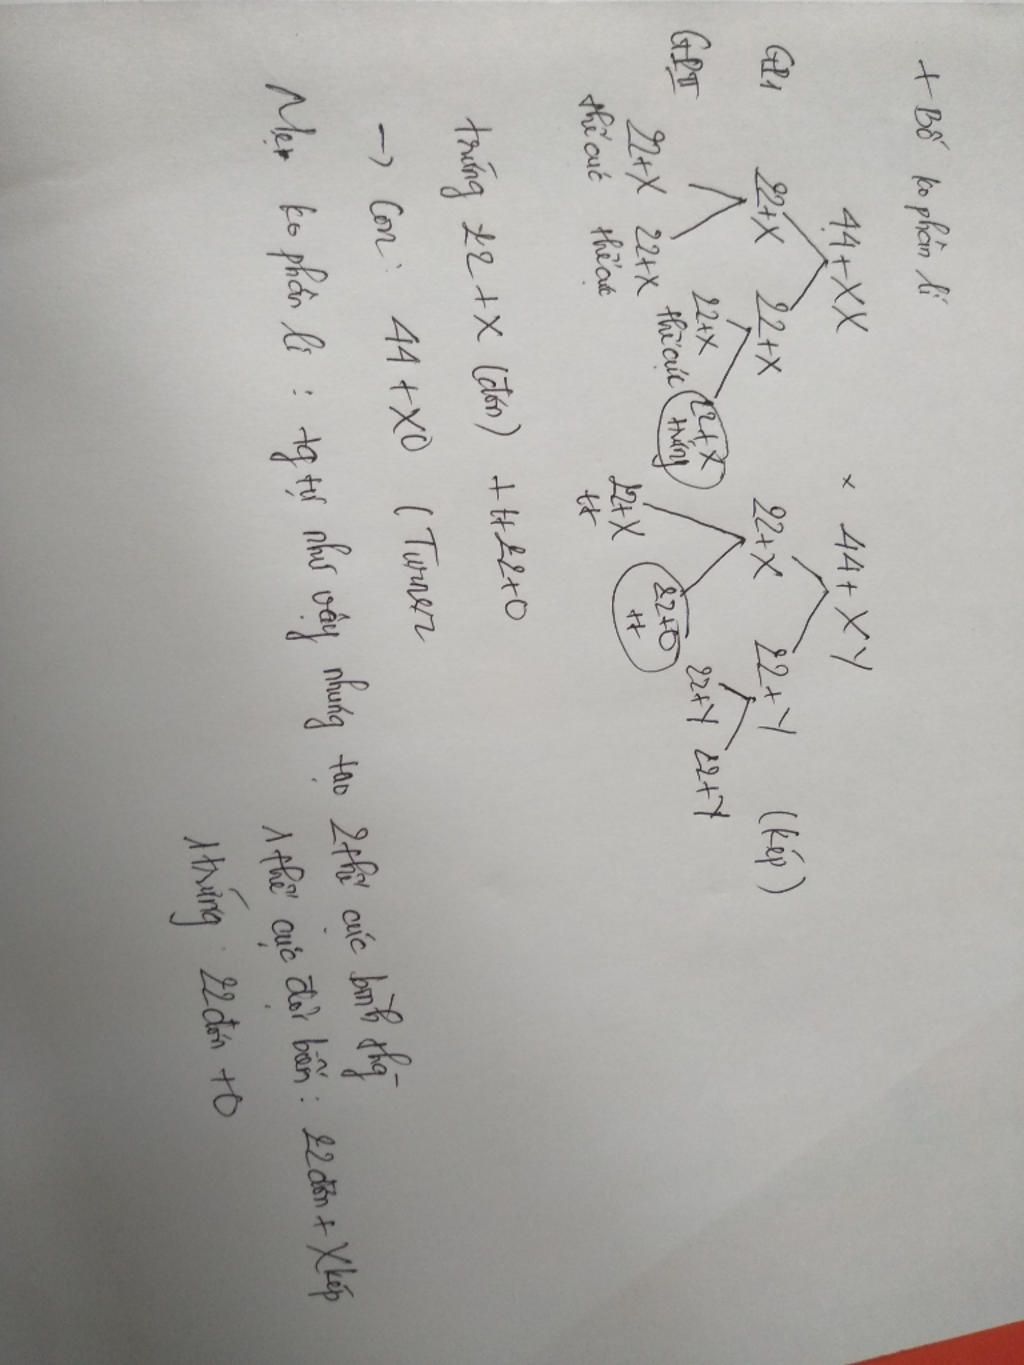 + Bố ko phân li
44+XX × 44+XY
GP1 22+X 22+X 22+X 22+Y (kép)
GPII 22+X 22+X 22+X 22+X 22+X 22+0 22+Y 22+Y
thể cực thể cực thể cực trứng tt tt
trứng 22+X (đơn) + tt 22+0
→ Con: 44+XO (Turner
Mẹ ko phân li : tg tự như vậy nhưng tạo 2 thể cực bình thg
1 thể cực đột biến : 22 đơn + X kép
1 trứng 22 đơn +0